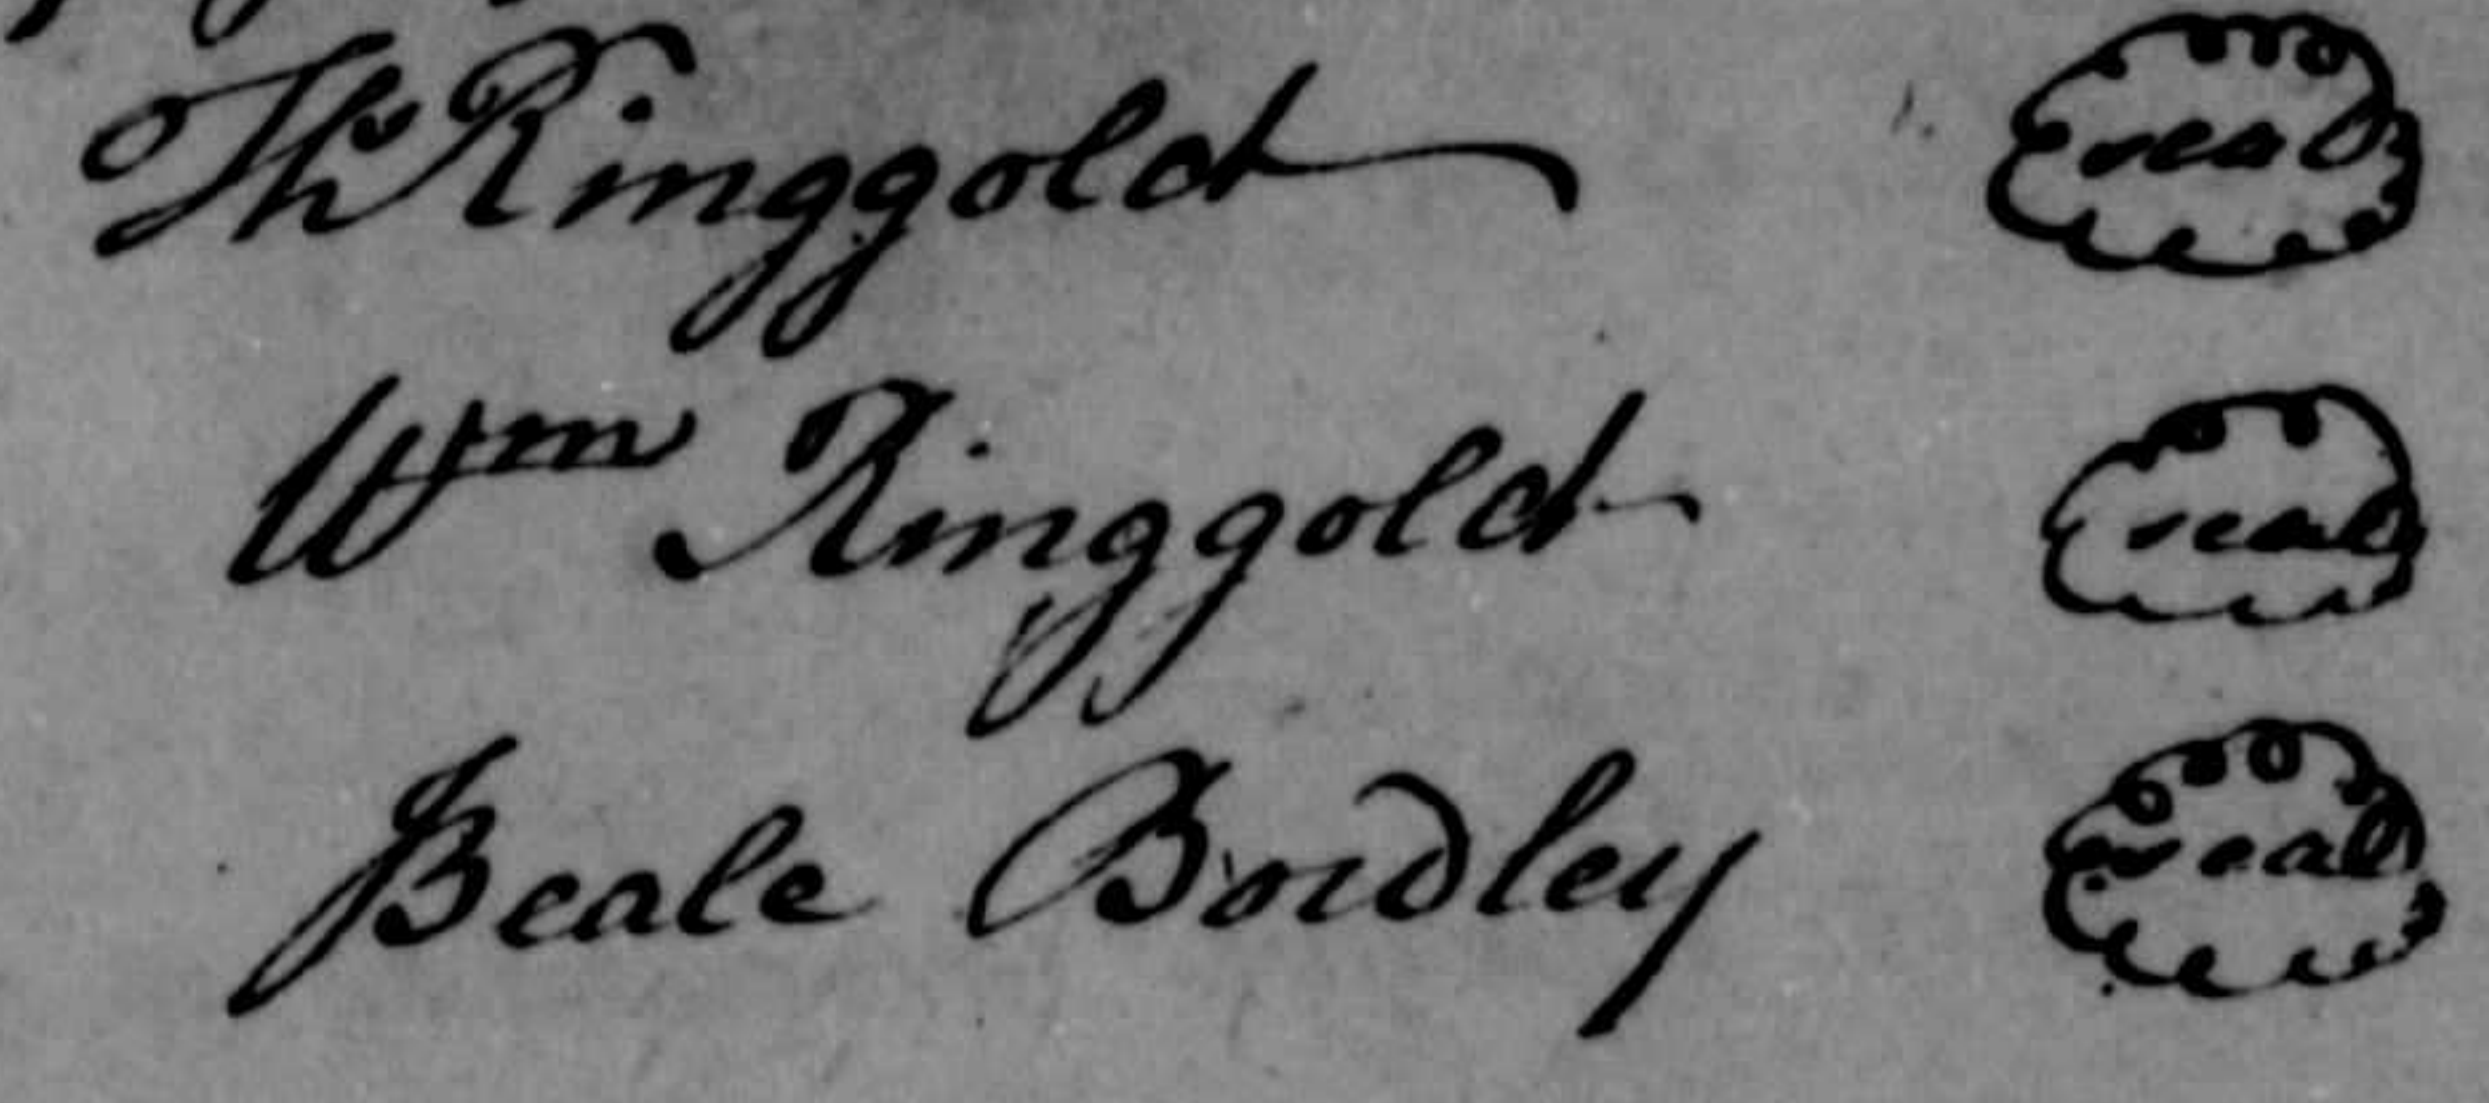 Ths Ringgold seal
Wm Ringgold seal
Beale Bordley seal